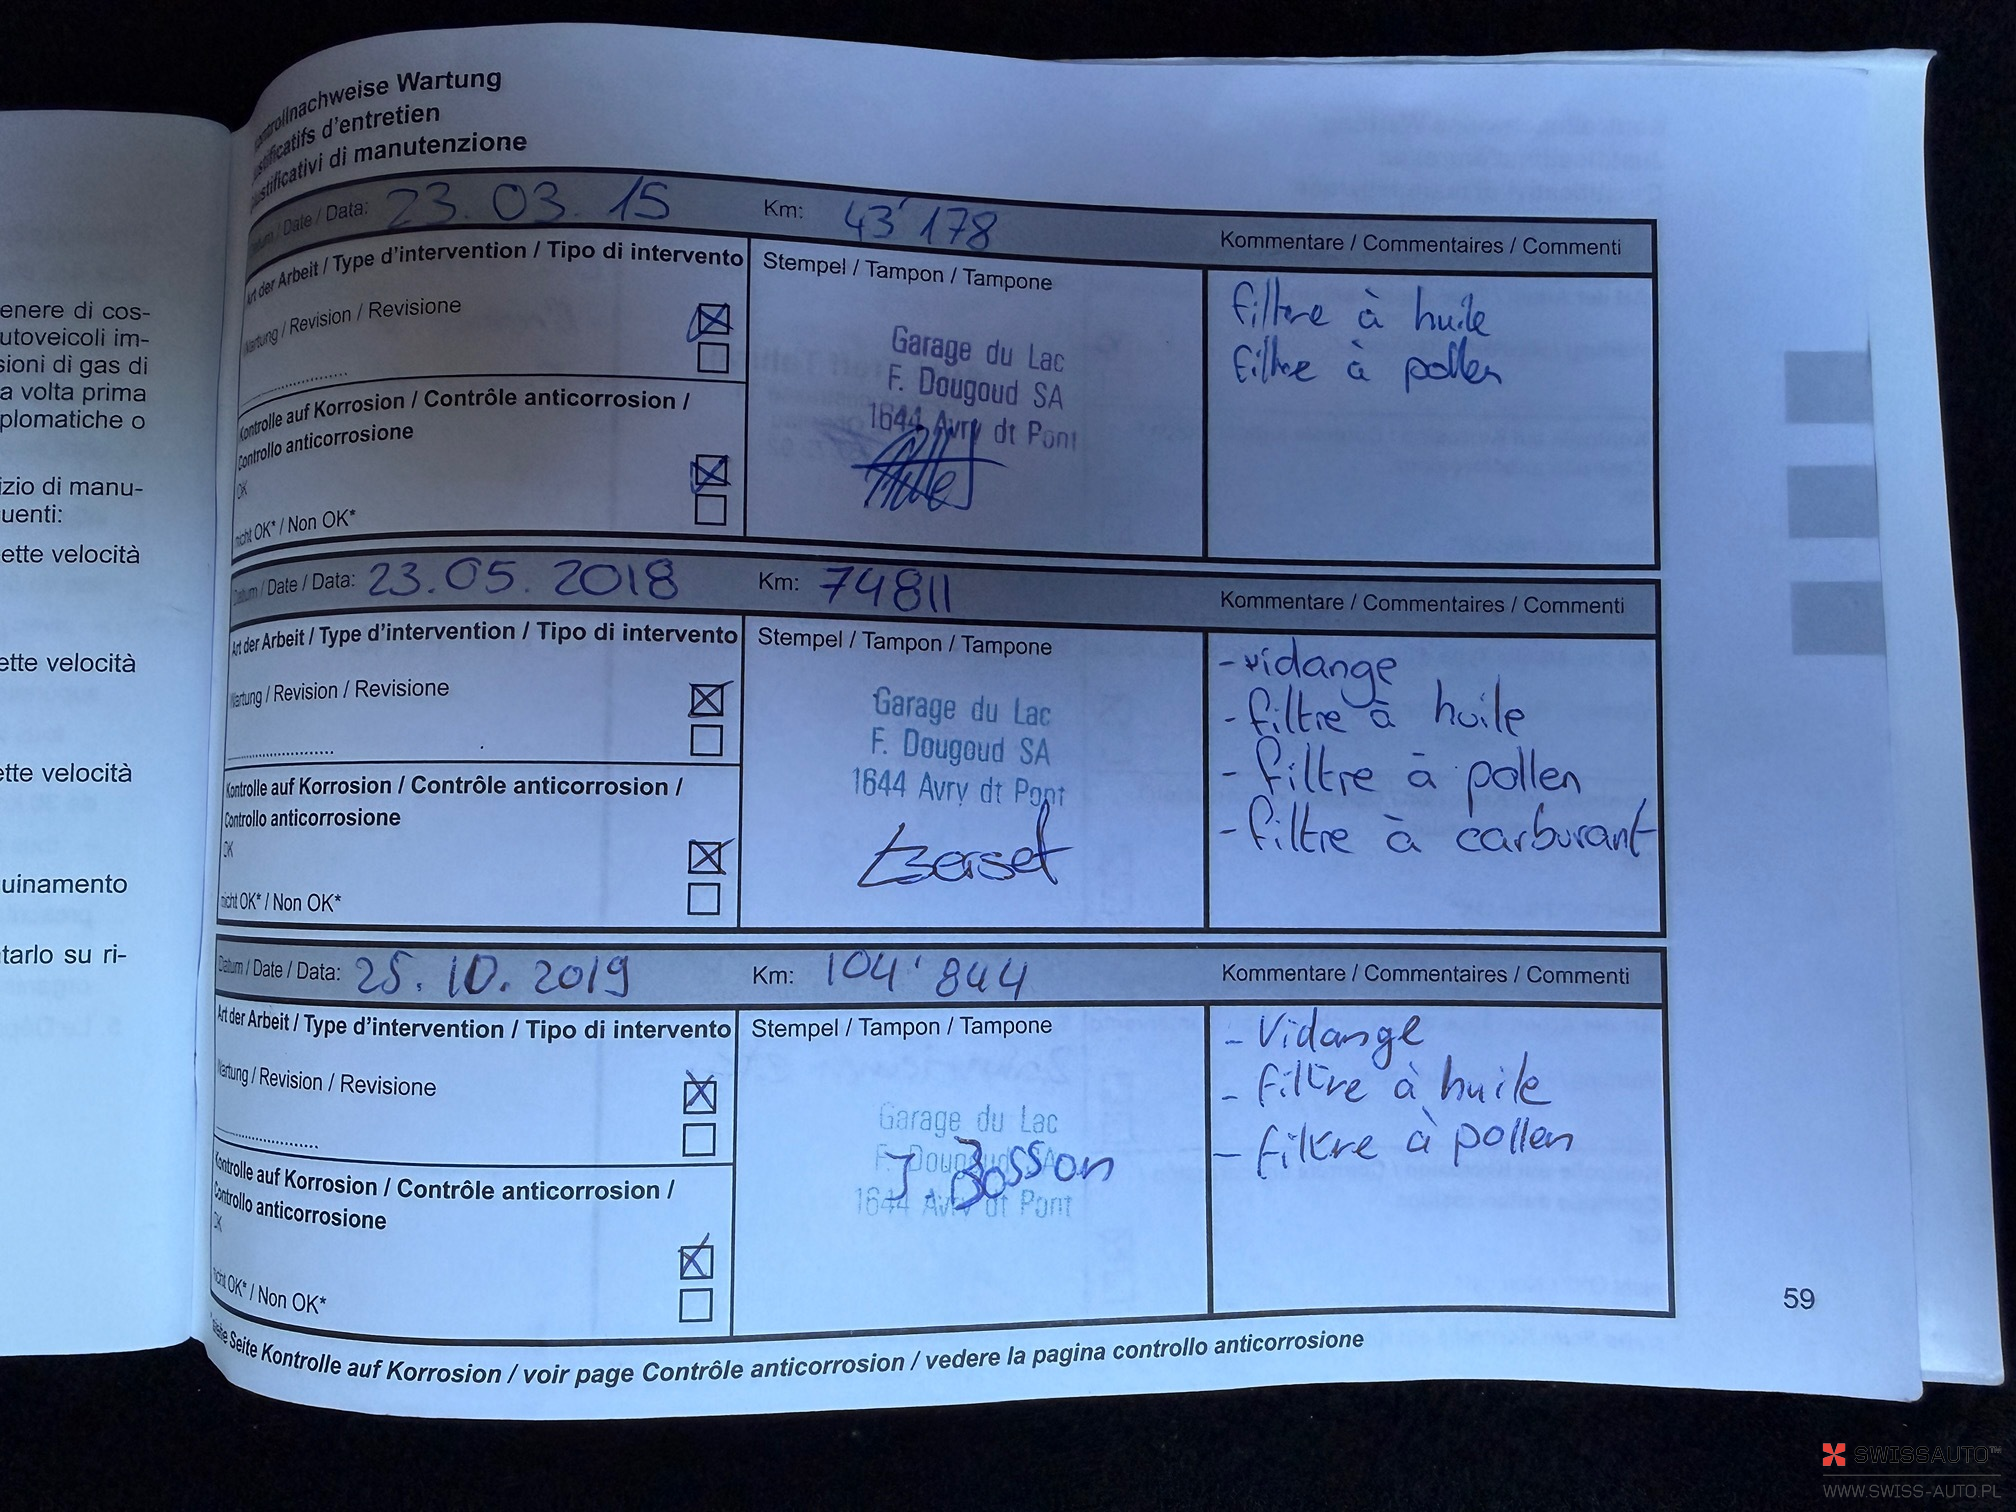 Kontrollnachweise Wartung
Justificatifs d'entretien
Giustificativi di manutenzione
Datum / Date / Data: 23.03.15 Km: 43'178 Kommentare / Commentaires / Commenti
Art der Arbeit / Type d'intervention / Tipo di intervento Stempel / Tampon / Tampone
Wartung / Revision / Revisione
Garage du Lac
F. Dougoud SA
1644 Avry dt Pont
filtre à huile
filtre à pollen
Kontrolle auf Korrosion / Contrôle anticorrosion /
Controllo anticorrosione
OK
nicht OK* / Non OK*
Datum / Date / Data: 23.05.2018 Km: 74811 Kommentare / Commentaires / Commenti
Art der Arbeit / Type d'intervention / Tipo di intervento Stempel / Tampon / Tampone
Wartung / Revision / Revisione
Garage du Lac
F. Dougoud SA
1644 Avry dt Pont
- vidange
- filtre à huile
- filtre à pollen
- filtre à carburant
Kontrolle auf Korrosion / Contrôle anticorrosion /
Controllo anticorrosione
OK
nicht OK* / Non OK*
Datum / Date / Data: 25.10.2019 Km: 104'844 Kommentare / Commentaires / Commenti
Art der Arbeit / Type d'intervention / Tipo di intervento Stempel / Tampon / Tampone
Wartung / Revision / Revisione
Garage du Lac
F. Dougoud SA
J. Bosson
1644 Avry dt Pont
- Vidange
- filtre à huile
- filtre à pollen
Kontrolle auf Korrosion / Contrôle anticorrosion /
Controllo anticorrosione
OK
nicht OK* / Non OK*
*siehe Seite Kontrolle auf Korrosion / voir page Contrôle anticorrosion / vedere la pagina controllo anticorrosione
59
enere di cos-
utoveicoli im-
sioni di gas di
a volta prima
plomatiche o
izio di manu-
uenti:
ette velocità
ette velocità
ette velocità
uinamento
tarlo su ri-
SWISSAUTO™
WWW.SWISS-AUTO.PL